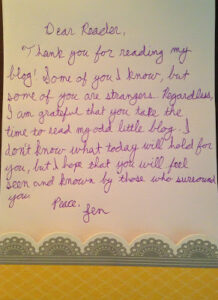 Dear Reader,
Thank you for reading my
blog! Some of you I know, but
some of you are strangers. Regardless,
I am grateful that you take the
time to read my odd little blog. I
don't know what today will hold for
you, but I hope that you will feel
seen and known by those who surround
you.
Peace,
Jen